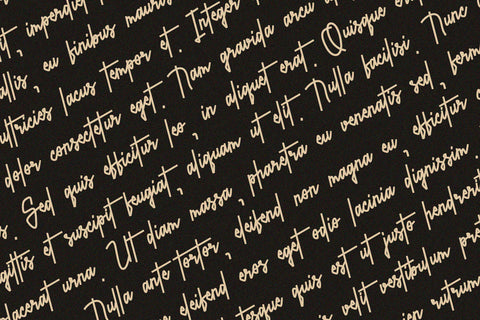 it, imperdiet mauris
allis, eu finibus mauris
ultricies lacus tempor et. Integer
dolor consectetur eget. Nam gravida arcu
Sed quis efficitur leo, in aliquet erat. Quisque
gittis et suscipit feugiat, aliquam ut elit. Nulla facilisi. Nunc
placerat urna. Ut diam massa, pharetra eu venenatis sed, ferm
Nulla ante tortor, eleifend non magna eu, efficitur
eleifend eros eget odio lacinia dignissim.
tesque quis est ut justo hendrerit
velit vestibulum pre
ien rutrum